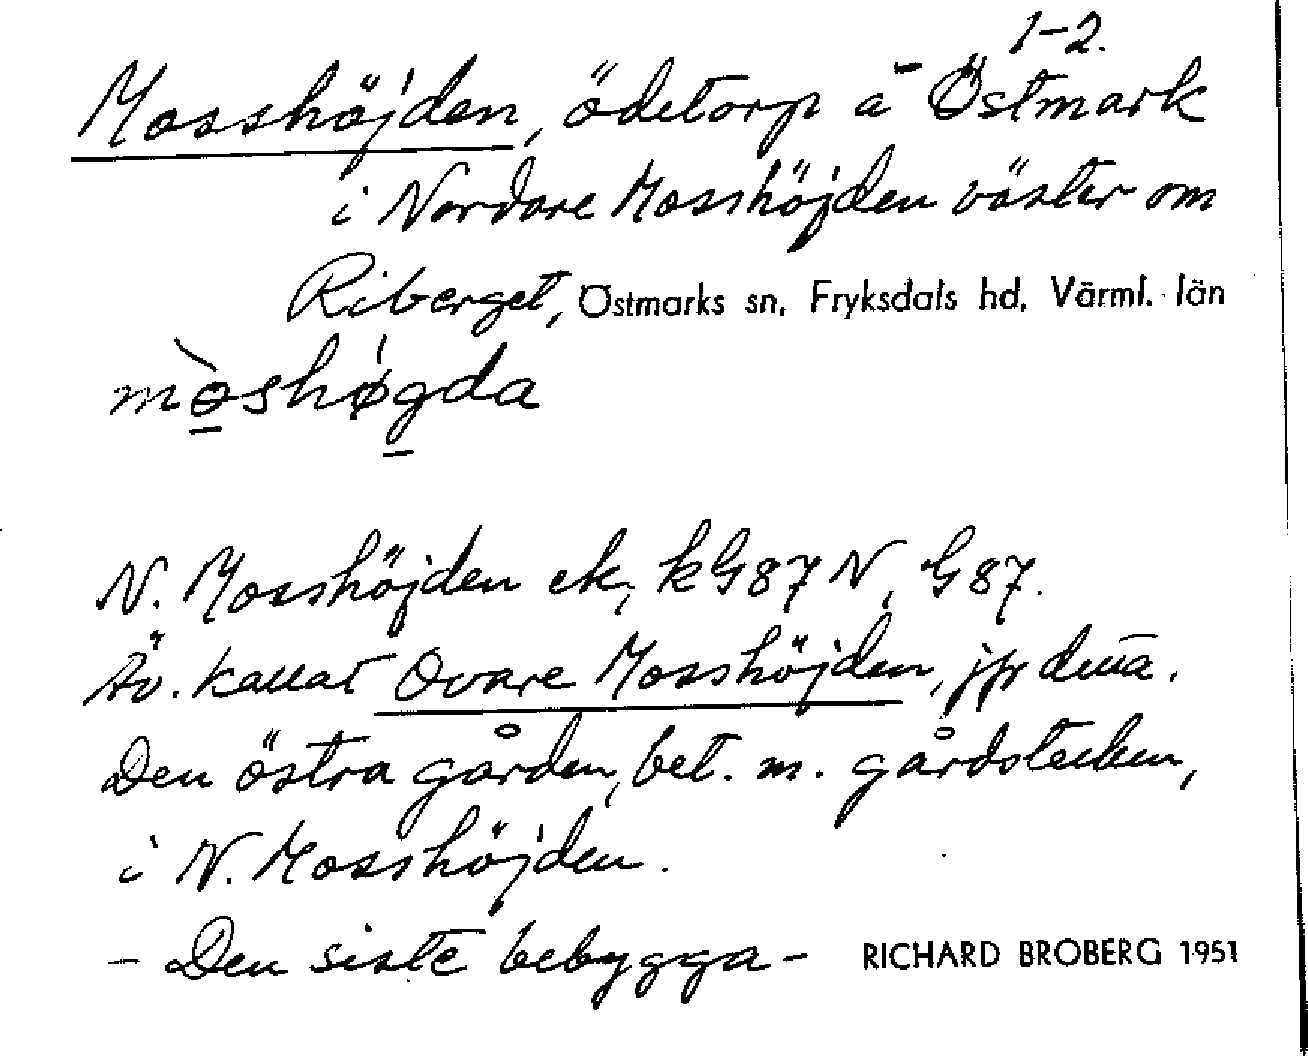 1-2.
Mosshöjden, ödetorp å Östmark
i Nordare Mosshöjden väster om
Riberget, Östmarks sn, Fryksdals hd, Värml. län
mòshǿgda
N. Mosshöjden ek, kG87N, G87.
Äv. kallat Ovare Mosshöjden, jfr detta.
Den östra gården, bet. m. gårdstecken,
i N. Mosshöjden.
- Den siste bebygga- RICHARD BROBERG 1951